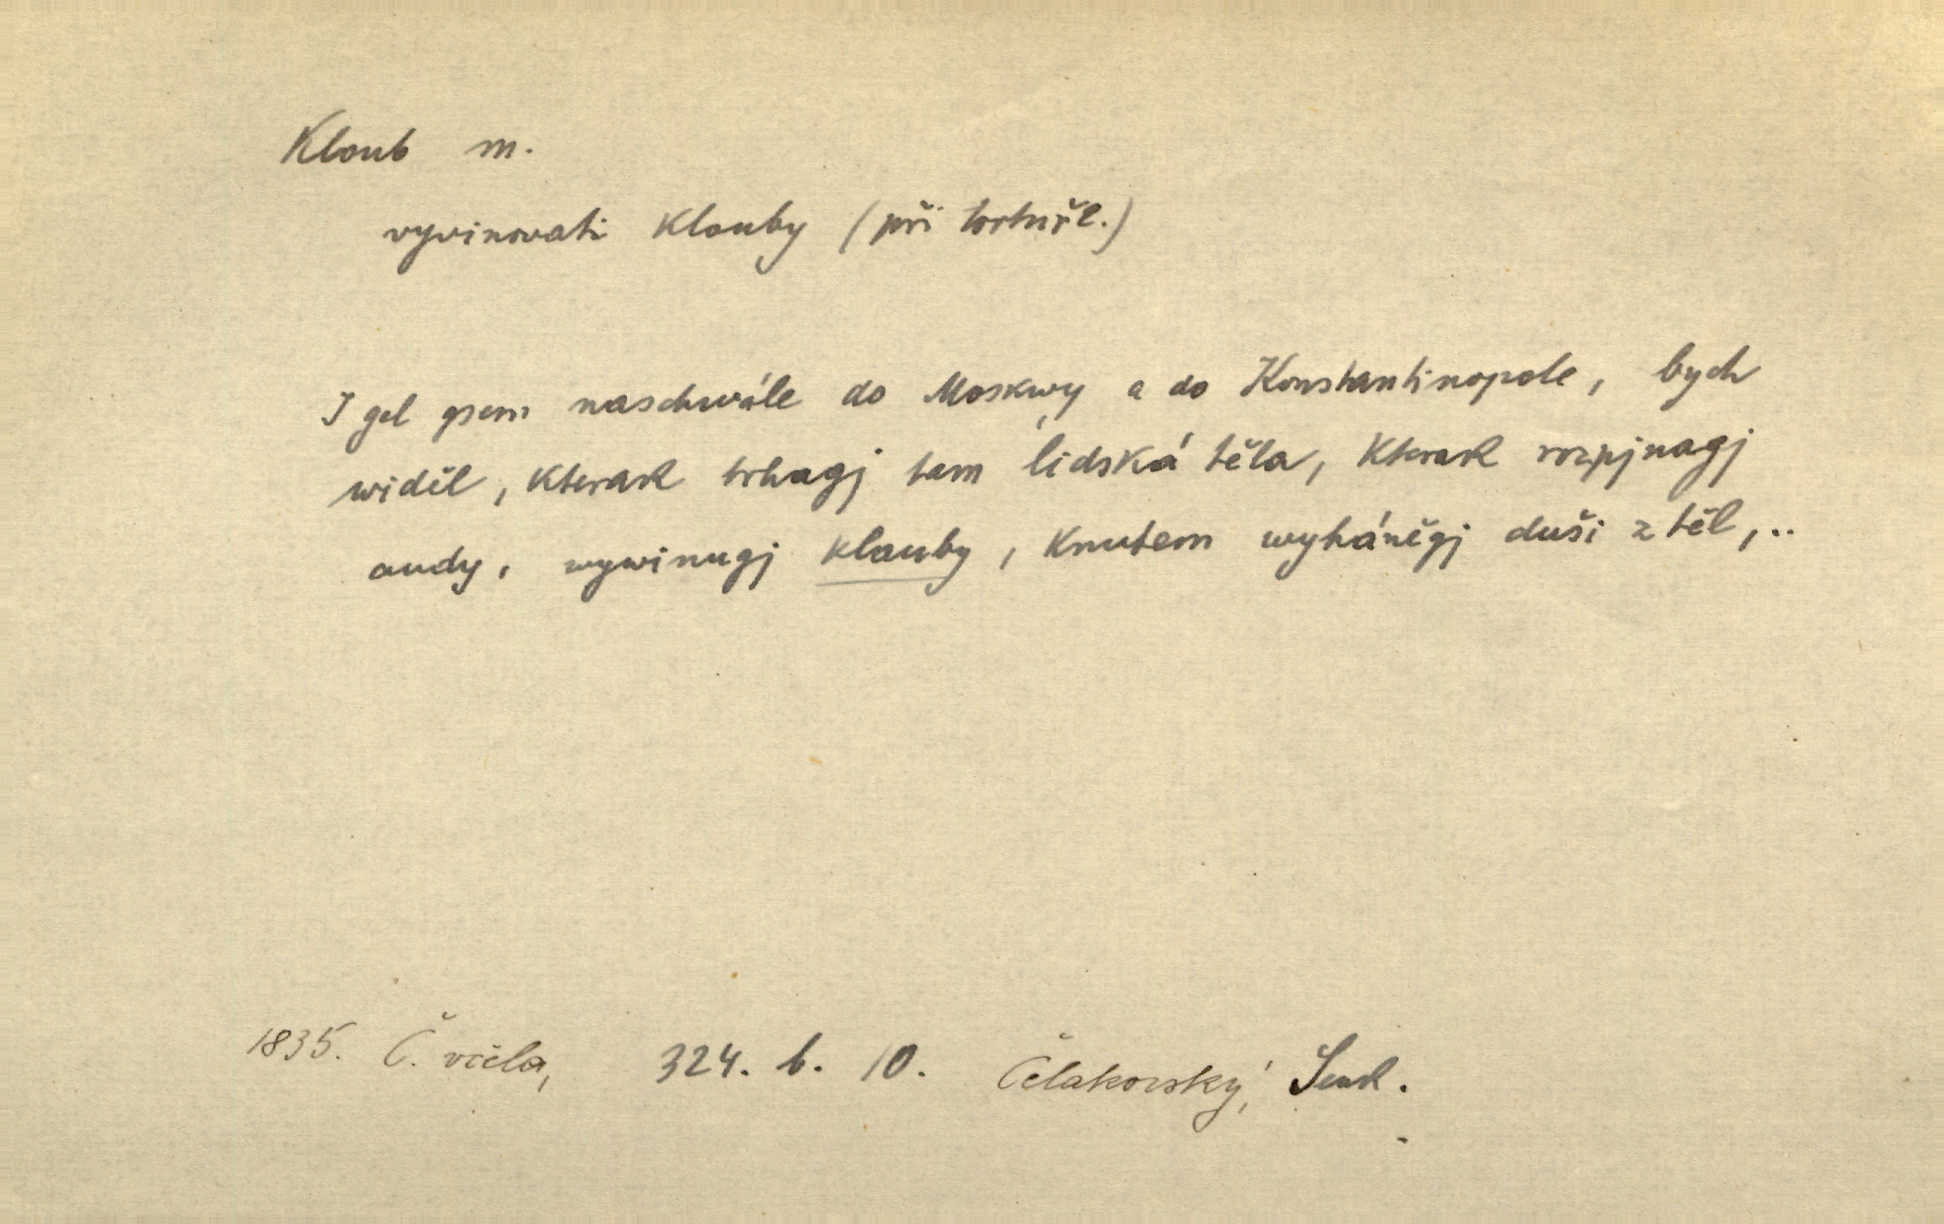 Kloub m.
vyvinovati klouby (při tortuře.)
I gel gsem naschwále do Moskwy a do Konstantinopole, bych
widěl, kterak trhagj tam lidská těla, kterak rozpjnagj
audy, wywinugj klauby, knutem wyháněgj duši z těl,..
1835. Č. včela, 324. b. 10. Čelakovský,